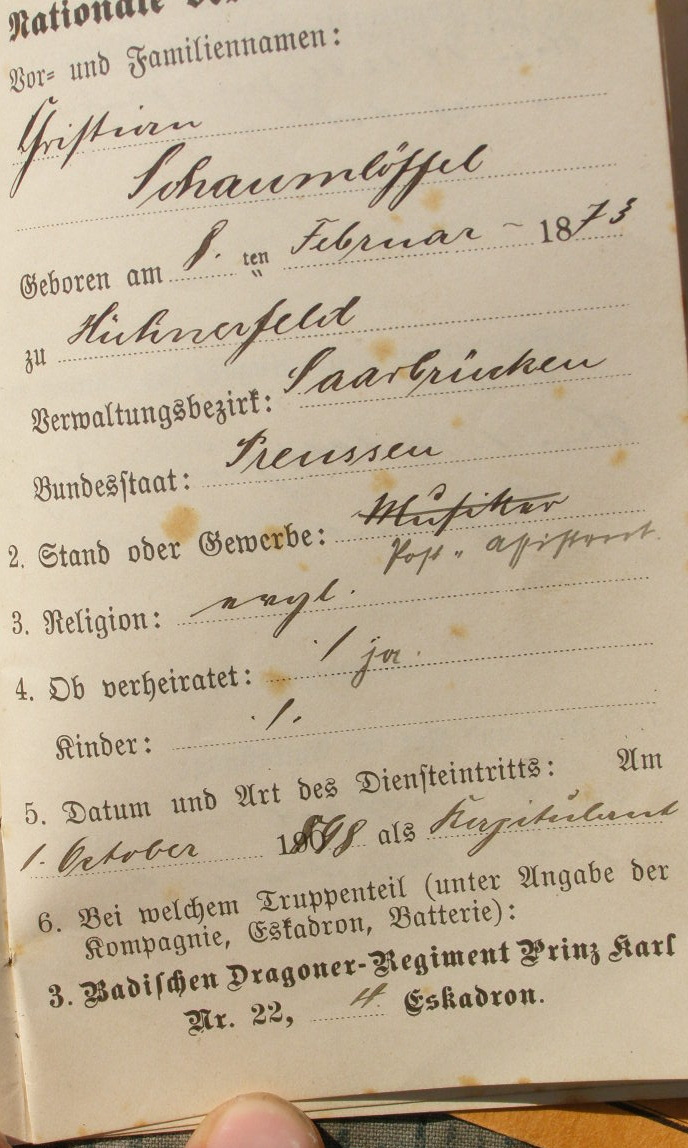 Nationale
Vor- und Familiennamen:
Christian
Schaumlöffel
Geboren am 8. ten Februar - 1873
zu Hühnerfeld
Verwaltungsbezirk: Saarbrücken
Bundesstaat: Preussen
2. Stand oder Gewerbe: Musiker
Post-Assistent
3. Religion: evgl.
4. Ob verheiratet: / ja.
Kinder: /.
5. Datum und Art des Diensteintritts: Am
1. October 1898 als Kapitulant
6. Bei welchem Truppenteil (unter Angabe der
Kompagnie, Eskadron, Batterie):
3. Badischen Dragoner-Regiment Prinz Karl
Nr. 22, 4. Eskadron.